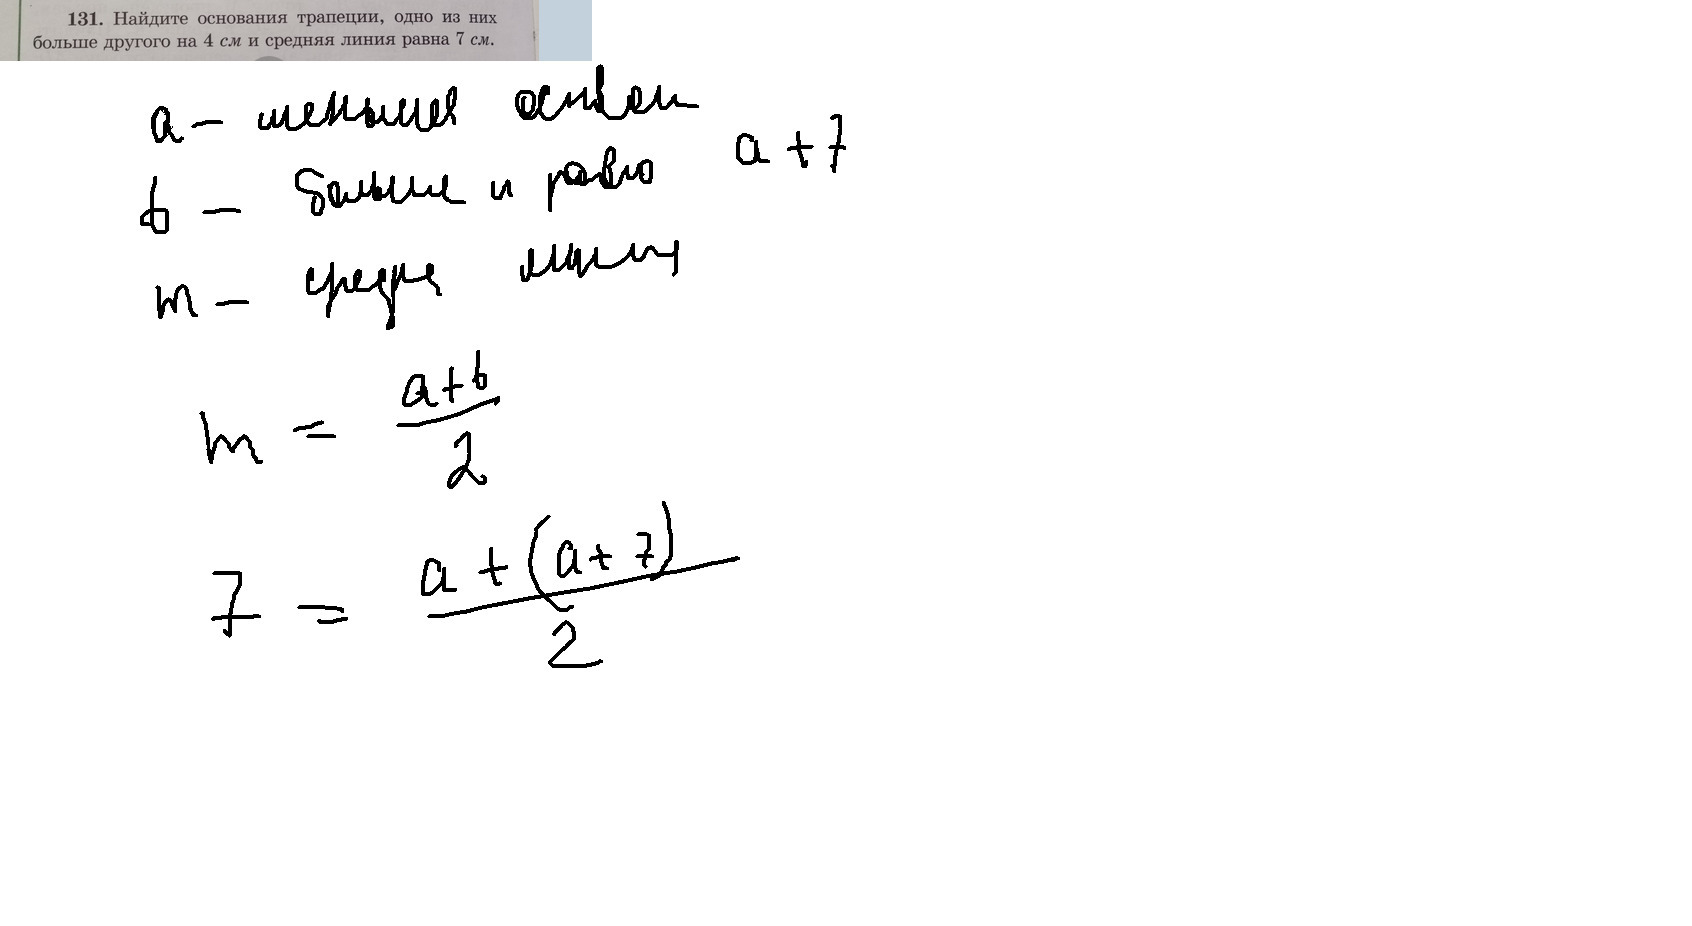 131. Найдите основания трапеции, одно из них
больше другого на 4 см и средняя линия равна 7 см.
a –
b – больше и равно a + 7
m –
m = a+b / 2
7 = a + (a + 7) / 2